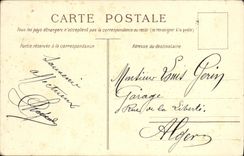 CARTE POSTALE
Tous les pays étrangers n'acceptent pas la correspondance au recto (se renseigner à la poste)
Partie réservée à la correspondance
Adresse du destinataire
Souvenir
affectueux
Monsieur
Garage
Rue de la Liberté
Alger